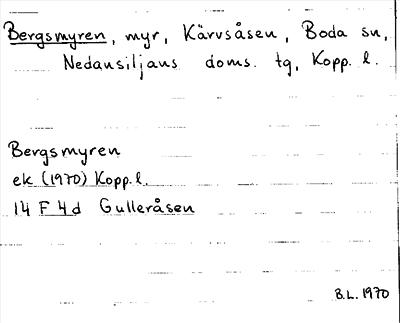 Bergsmyren, myr, Kärvsåsen, Boda sn,
Nedansiljans doms. tg, Kopp. l.
Bergsmyren
ek (1970) Kopp. l.
14 F 4d Gulleråsen
B.L. 1970